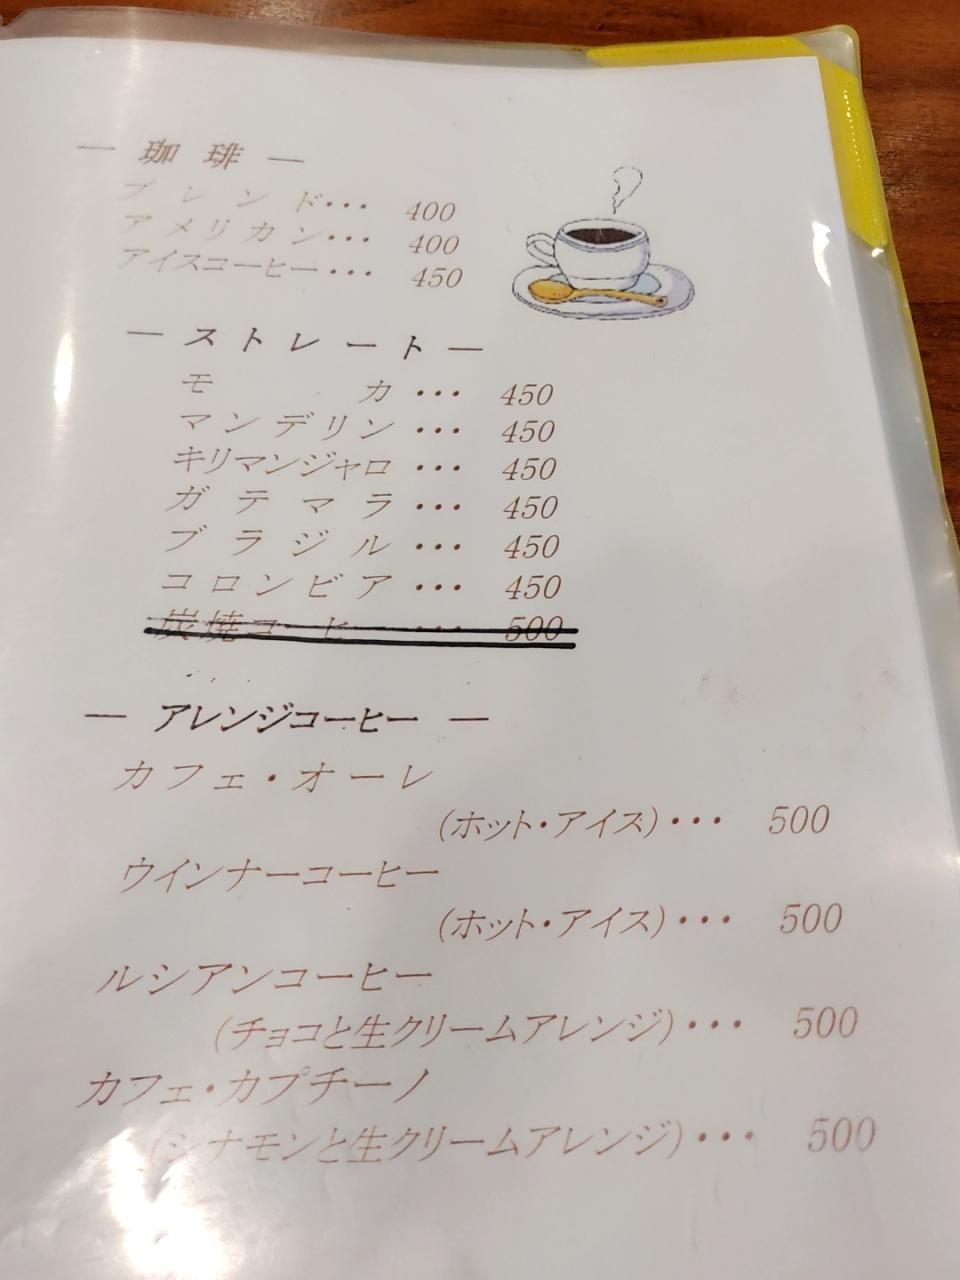 ― 珈琲 ―
ブレンド・・・ 400
アメリカン・・・ 400
アイスコーヒー・・・ 450
― ストレート ―
モカ・・・ 450
マンデリン・・・ 450
キリマンジャロ・・・ 450
ガテマラ・・・ 450
ブラジル・・・ 450
コロンビア・・・ 450
炭焼コーヒー・・・ 500
― アレンジコーヒー ―
カフェ・オーレ
(ホット・アイス)・・・ 500
ウインナーコーヒー
(ホット・アイス)・・・ 500
ルシアンコーヒー
(チョコと生クリームアレンジ)・・・ 500
カフェ・カプチーノ
(シナモンと生クリームアレンジ)・・・ 500